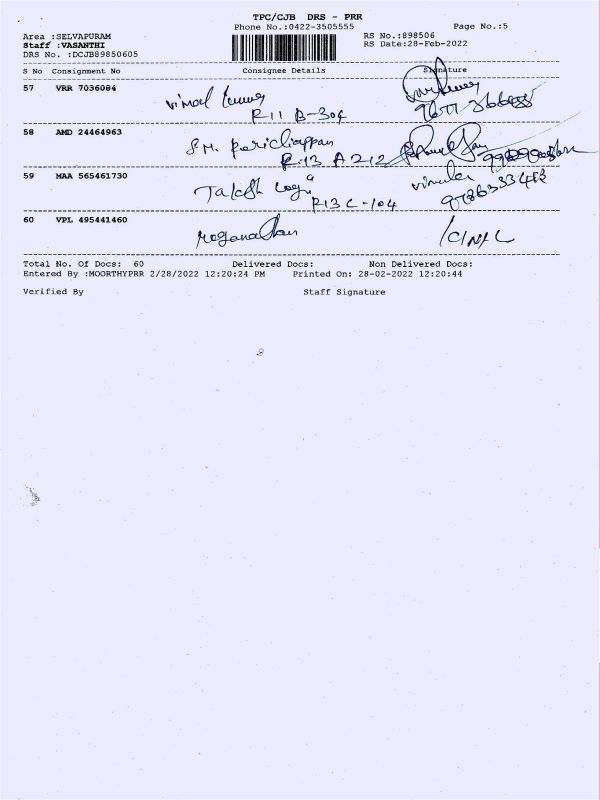 TPC/CJB DRS - PRR
Phone No.:0422-3505555 Page No.:5
Area :SELVAPURAM RS No.:898506
Staff :VASANTHI RS Date:28-Feb-2022
DRS No. :DCJB89850605
S No Consignment No Consignee Details Signature
57 VRR 7036084 Vimal Kumar
R11 B-304
58 AMD 24464963 S.M. Perichiappan
R.13 A 212
59 MAA 565461730 vimala
R13 C-104 9786333413
60 VPL 495441460
Total No. Of Docs: 60 Delivered Docs: Non Delivered Docs:
Entered By :MOORTHYPRR 2/28/2022 12:20:24 PM Printed On: 28-02-2022 12:20:44
Verified By Staff Signature